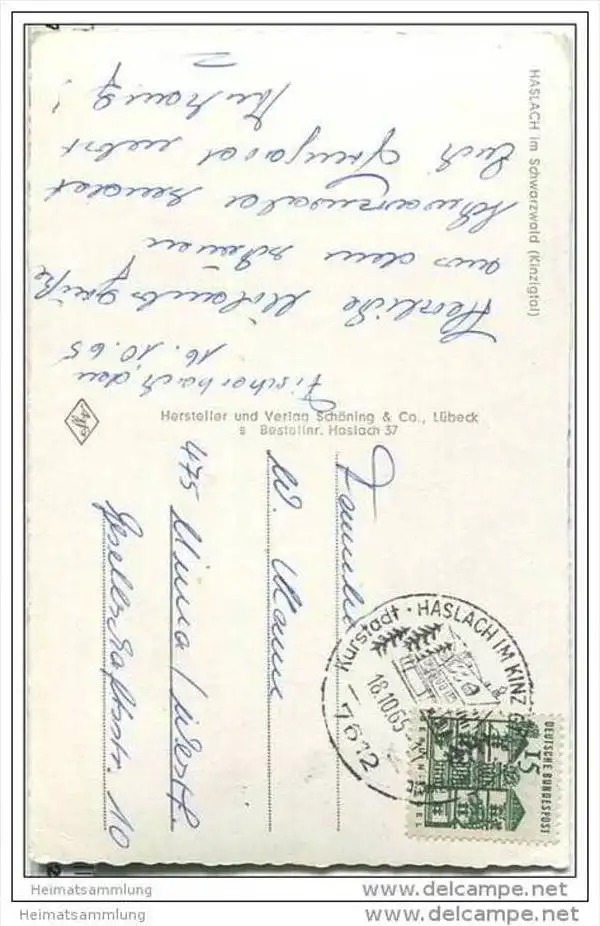 HASLACH im Schwarzwald (Kinzigtal)
Fischerbach, den
16.10.65
Herzliche Urlaubsgrüße
aus dem schönen
Schwarzwald sendet
Euch
Hersteller und Verlag Schöning & Co., Lübeck
s Bestellnr. Haslach 37
Agfa
Familie
W.
475 Unna / Westf.
Gesellschaftsstr. 10
Kurstadt · HASLACH IM KINZ
18.10.65
7612
15
DEUTSCHE BUNDESPOST
Heimatsammlung
Heimatsammlung
www.delcampe.net
www.delcampe.net